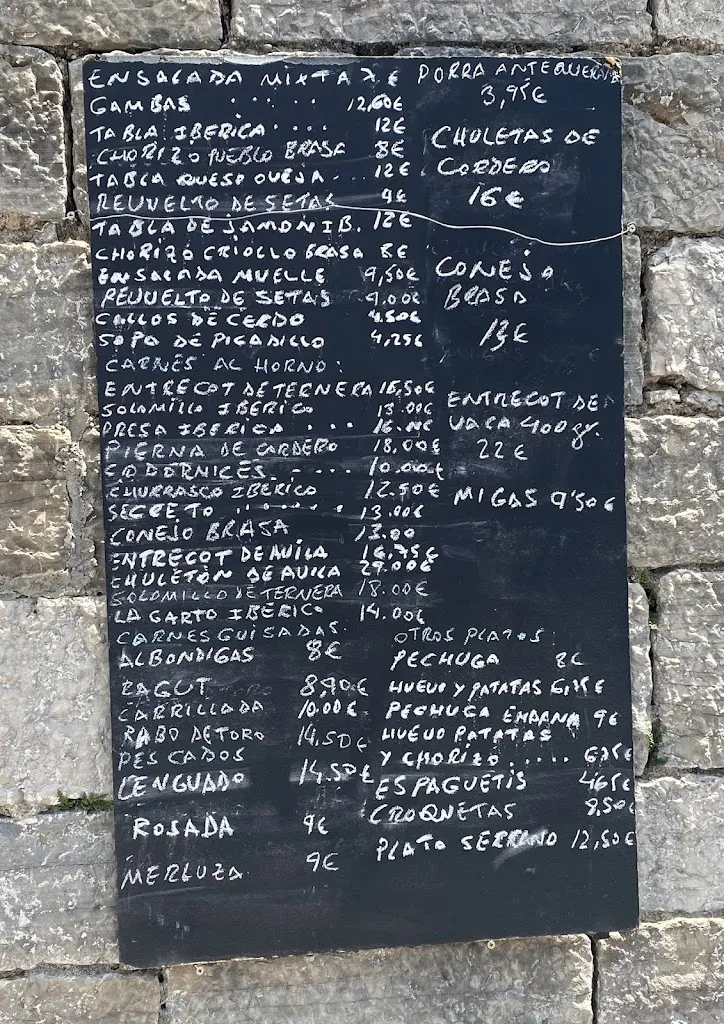 ENSALADA MIXTA 7 €
GAMBAS . . . . . 12,60€
TABLA IBERICA . . . . 12€
CHORIZO PUEBLO BRASA 8€
TABLA QUESO OVEJA . . . 12€
REUVELTO DE SETAS 9€
TABLA DE JAMON IB. 12€
CHORIZO CRIOLLO BRASA 8€
ENSALADA MUELLE 9,50€
REUVELTO DE SETAS 9.00€
CALLOS DE CERDO 4.50€
SOPA DE PICADILLO 4,25€
CARNES AL HORNO:
ENTRECOT DE TERNERA 16,50€
SOLOMILLO IBERICO 13.00€
PRESA IBERICA . . . 16.00€
PIERNA DE CORDERO 18,00€
CODORNICES . - . . . 10.00€
CHURRASCO IBERICO 12.50€
SECRETO . . . . . . 13.00€
CONEJO BRASA 13.00
ENTRECOT DE AVILA 16.75€
CHULETON DE AVILA 29.00€
SOLOMILLO DE TERNERA 18.00€
LAGARTO IBERICO 14.00€
CARNES GUISADAS.
ALBONDIGAS 8€
RAGUT 8,90€
CARRILLADA 10.00€
RABO DE TORO 14,50€
PESCADOS
LENGUADO 14,50€
ROSADA 9€
MERLUZA 9€
PORRA ANTEQUERANA
3,95€
CHULETAS DE
CORDERO
16€
CONEJO
BRASA
13€
ENTRECOT DE
VACA 400 gr.
22€
MIGAS 9'50€
OTROS PLATOS:
PECHUGA 8€
HUEVO Y PATATAS 6,25€
PECHUGA EMPANA 9€
HUEVO PATATAS
Y CHORIZO . . . . . 6,75€
ESPAGUETIS 4,65€
CROQUETAS 8,50€
PLATO SERRANO 12,50€